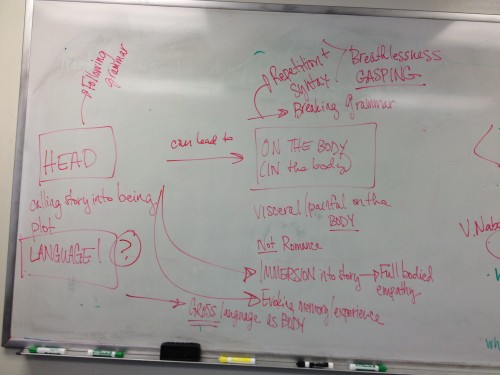 Following
grammar
HEAD
calling story into being
plot
LANGUAGE!
?
can lead to
Repetition +
syntax
Breathlessness
GASPING
Breaking Grammar
ON THE BODY
(IN the body)
visceral/painful on the
BODY
Not Romance
IMMERSION into story → Full bodied
empathy
Evoking memory/experience
GROSS/language as BODY
V. Nabo
wh